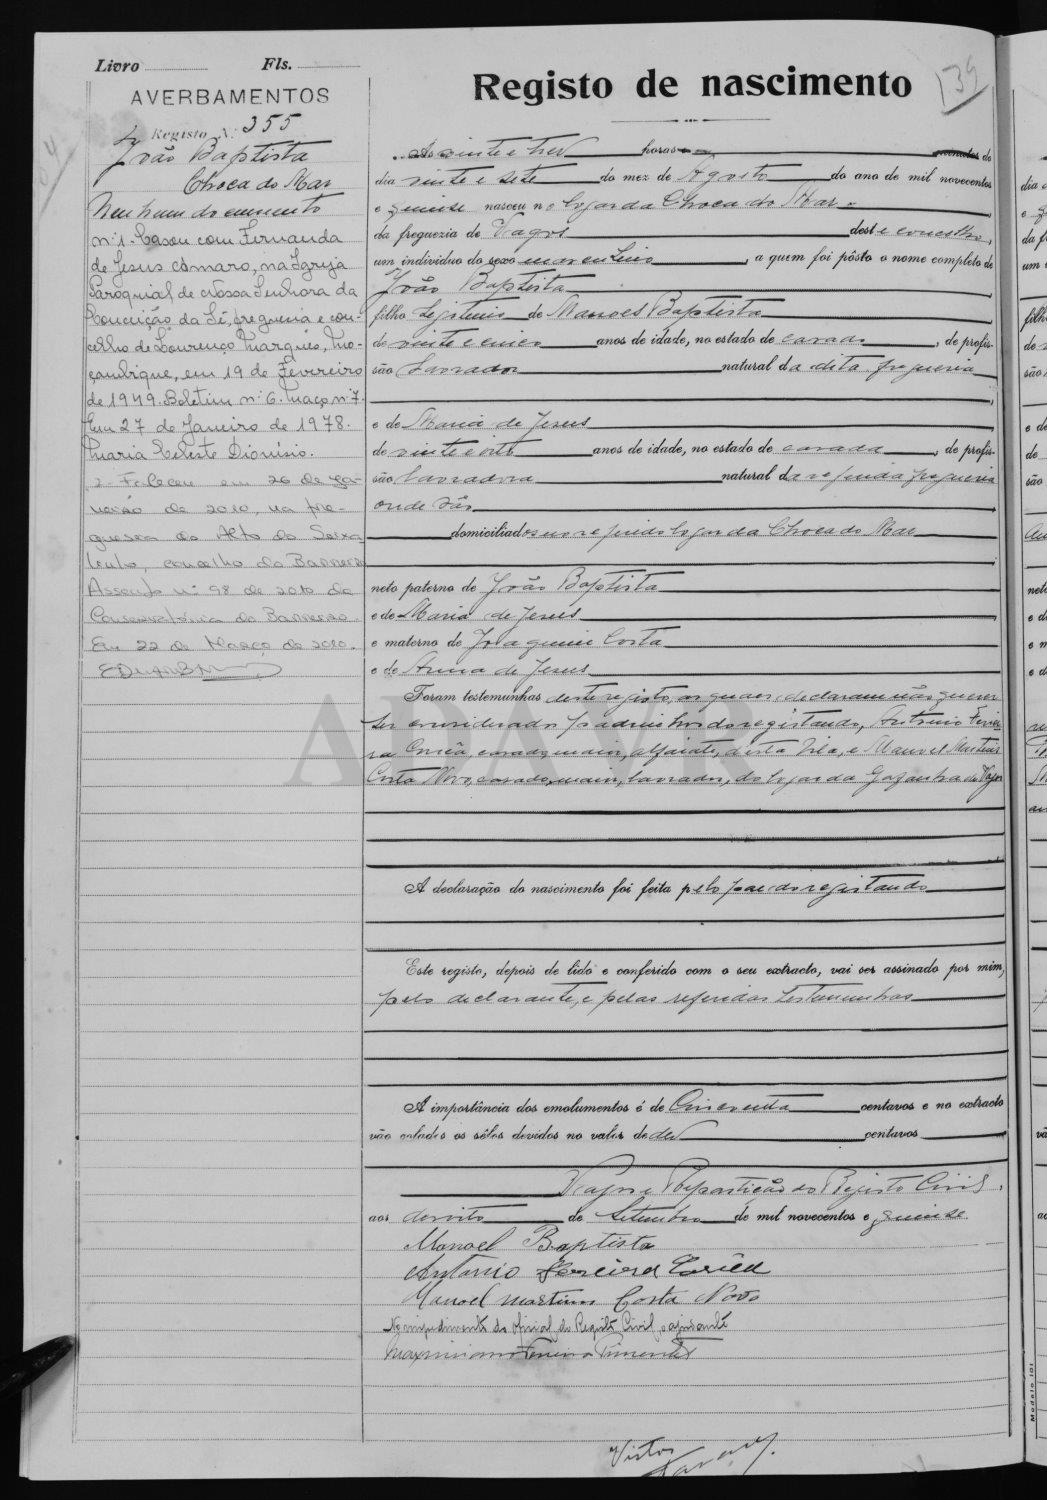 Livro Fls.
AVERBAMENTOS
Registo N.º 355
João Baptista
Choca do Mar
Nenhum documento
nº 1 - Casou com Fernanda
de Jesus Camaro, na Igreja
Paroquial de Nossa Senhora da
Conceição da Sé, freguesia e con-
celho de Lourenço Marques, Mo-
çambique, em 19 de Fevereiro
de 1949. Boletim nº 6. Maço nº 7.
Em 27 de Janeiro de 1978.
Maria Celeste Dionísio.
2- Faleceu em 26 de Ja-
neiro de 2010, na fre-
guesia do Alto do Seixa
linho, concelho do Barreiro
Assento nº 98 de 2010 da
Conservatória do Barreiro.
Em 22 de Março de 2010.
139
Registo de nascimento
Ás vinte e tres horas minutos do
dia vinte e sete do mez de Agosto do ano de mil novecentos
e quinse nasceu no logar da Choca do Mar
da freguezia de Vagos deste concelho,
um individuo do sexo masculino, a quem foi pôsto o nome completo de
João Baptista
filho legitimo de Manoel Baptista
de vinte e cinco anos de idade, no estado de casado, de profis-
são Lavrador natural da dita freguesia
e de Maria de Jesus
de vinte e oito anos de idade, no estado de casada, de profis-
são lavradora natural da referida freguesia
onde são
domiciliados no referido logar da Choca do Mar
neto paterno de João Baptista
e de Maria de Jesus
e materno de Joaquim Costa
e de Anna de Jesus
Foram testemunhas deste registo, as quaes declaram não querer
ser considerados padrinhos do registando, Antonio Ferrei-
ra Corrêa, casado, maior, alfaiate, desta Vila, e Manoel Martins
Costa Novo, casado, maior, lavrador, do logar da Gafanha de Vagos
A declaração do nascimento foi feita pelo pae do registando
Este registo, depois de lido e conferido com o seu extracto, vai ser assinado por mim,
pelo declarante, e pelas referidas testemunhas
A importância dos emolumentos é de Cincoenta centavos e no extracto
vão colados os sêlos devidos no valor de dez centavos
Vagos e Repartição do Registo Civil,
aos dezoito de Setembro de mil novecentos e quinse.
Manoel Baptista
Antonio Ferreira Corrêa
Manoel Martins Costa Novo
No impedimento do oficial do Registo Civil, o ajudante
Maximiano Ferreira Pimentel
Visto
Modelo 101
ADAVR